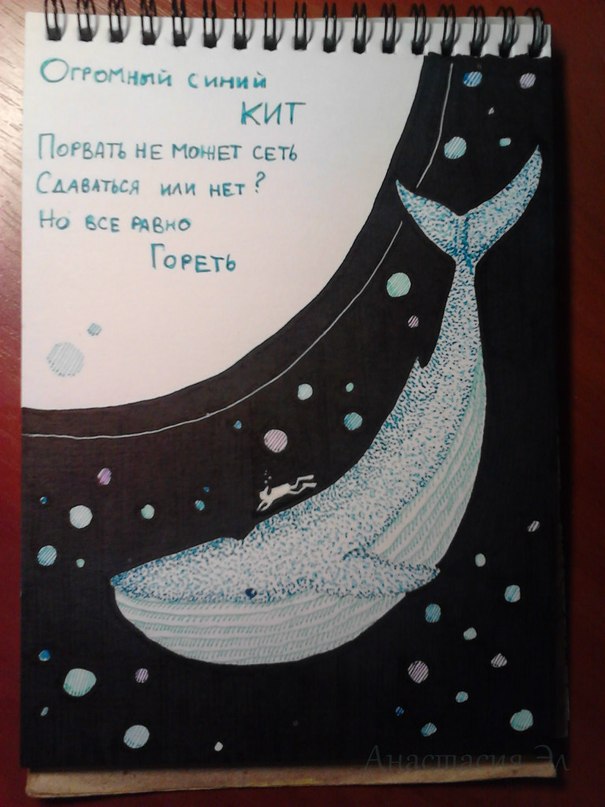 Огромный синий
КИТ
Порвать не может сеть
Сдаваться или нет?
Но все равно
Гореть
Анастасия Эл